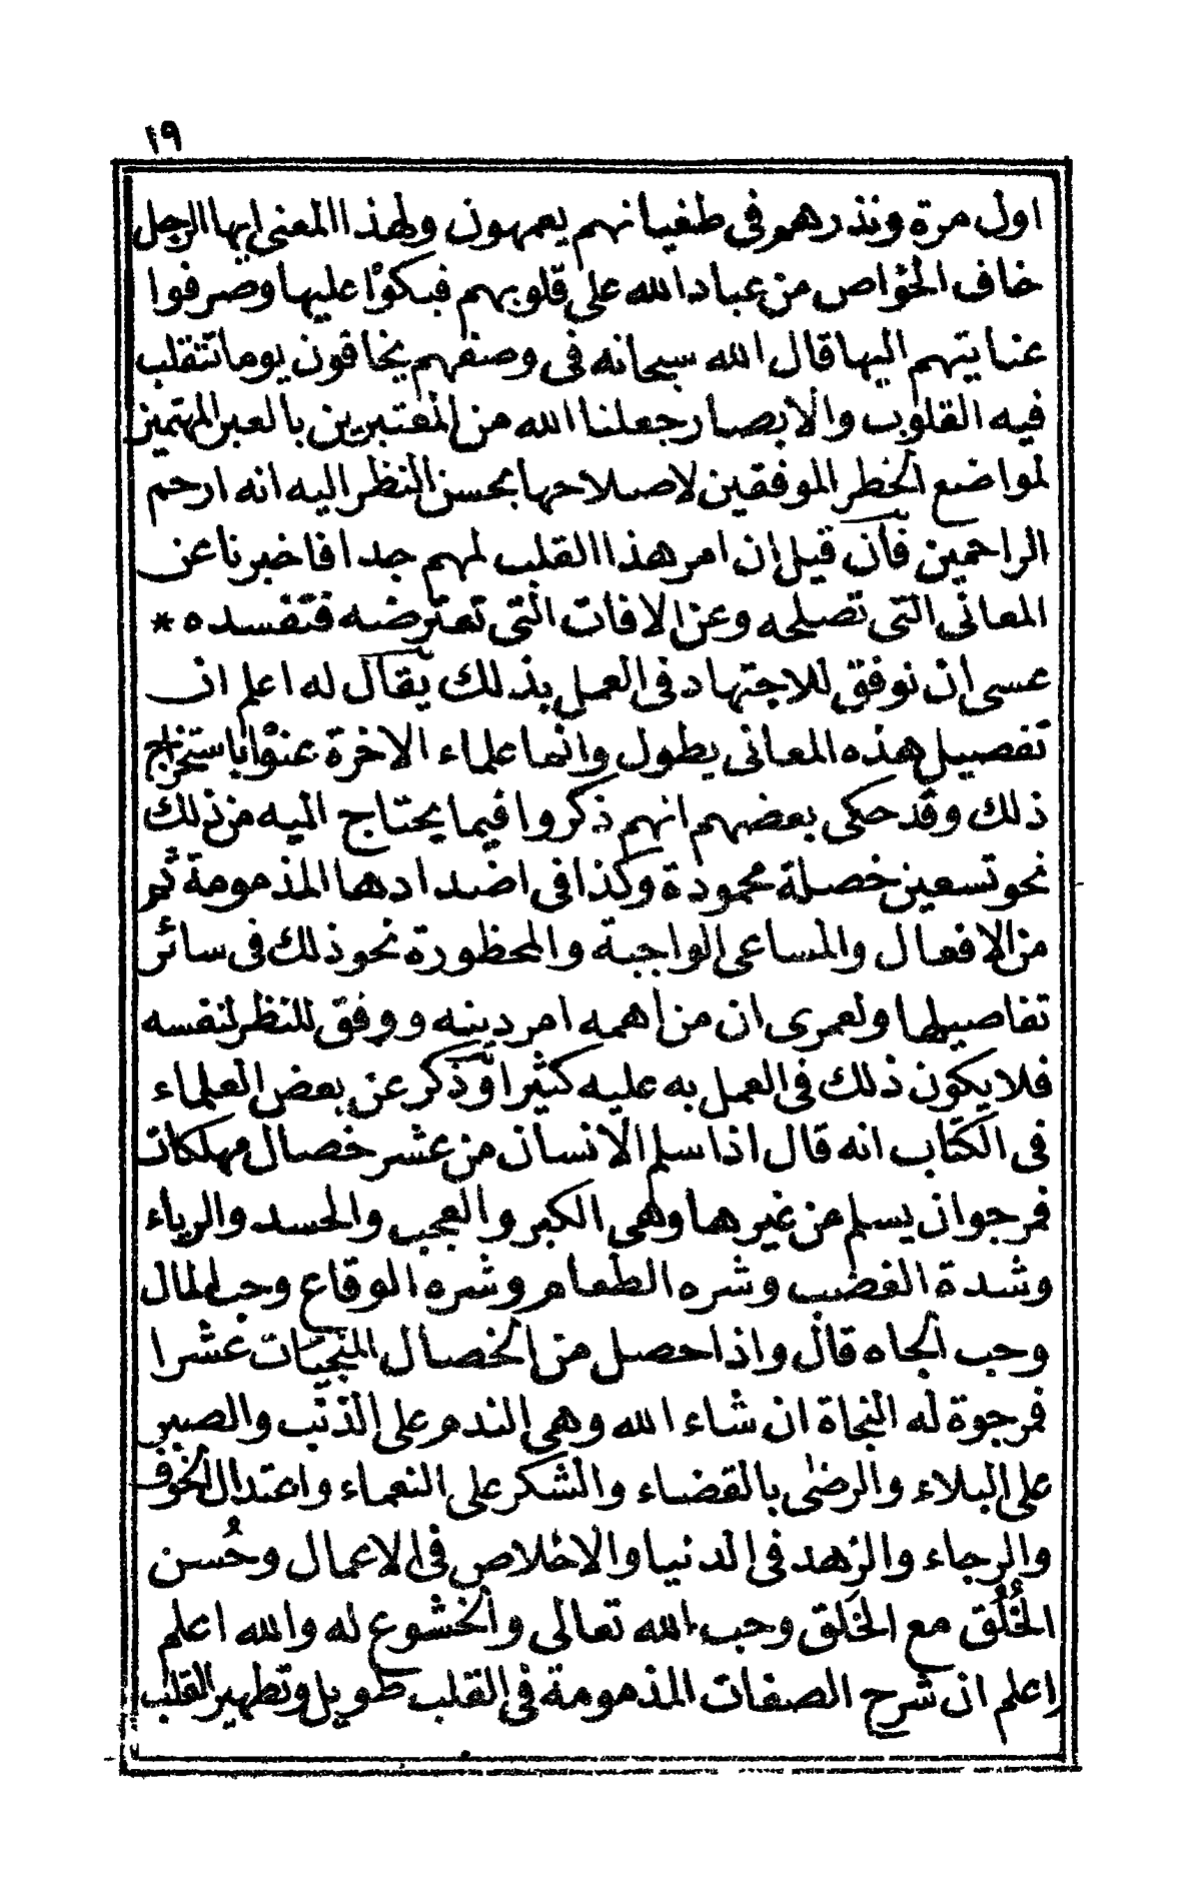 ١٩
اول مرة ونذرهم في طغيانهم يعمهون ولهذا المعنى ايها الرجل
خاف الخواص من عباد الله على قلوبهم فبكوا عليها وصرفوا
عنايتهم اليها قال الله سبحانه في وصفهم يخافون يوما تتقلب
فيه القلوب والابصار جعلنا الله من المعتبرين بالعبر المهتمين
لمواضع الخطر الموفقين لاصلاحها بحسن النظر اليه انه ارحم
الراحمين فان قيل ان امر هذا القلب لمهم جدا فاخبرنا عن
المعاني التى تصلحه وعن الافات التى تعترضه فتفسده *
عسى ان نوفق للاجتهاد في العمل بذلك يقال له اعلم ان
تفصيل هذه المعانى يطول وانما علماء الاخرة عنوا باستخراج
ذلك وقد حكى بعضهم انهم ذكروا فيما يحتاج اليه من ذلك
نحو تسعين خصلة محمودة وكذا في اضدادها المذمومة ثم
من الافعال والمساعى الواجبة والمحظورة نحو ذلك في سائر
تفاصيلها ولعمرى ان من اهمه امر دينه ووفق للنظر لنفسه
فلا يكون ذلك في العمل به عليه كثيرا وذكر عن بعض العلماء
فى الكتاب انه قال اذا سلم الانسان من عشر خصال مهلكات
فمرجوا ن يسلم من غيرها وهى الكبر والعجب والحسد والرياء
وشدة الغضب وشره الطعام وشره الوقاع وحب المال
وحب الجاه قال واذا حصل من الخصال المنجيات عشرا
فمرجوة له النجاة ان شاء الله وهى الندم على الذنب والصبر
على البلاء والرضى بالقضاء والشكر على النعماء واعتدال الخوف
والرجاء والزهد في الدنيا والاخلاص في الاعمال وحُسن
الخُلُق مع الخَلق وحب الله تعالى والخشوع له والله اعلم
اعلم ان شرح الصفات المذمومة في القلب طويل وتطهير القلب